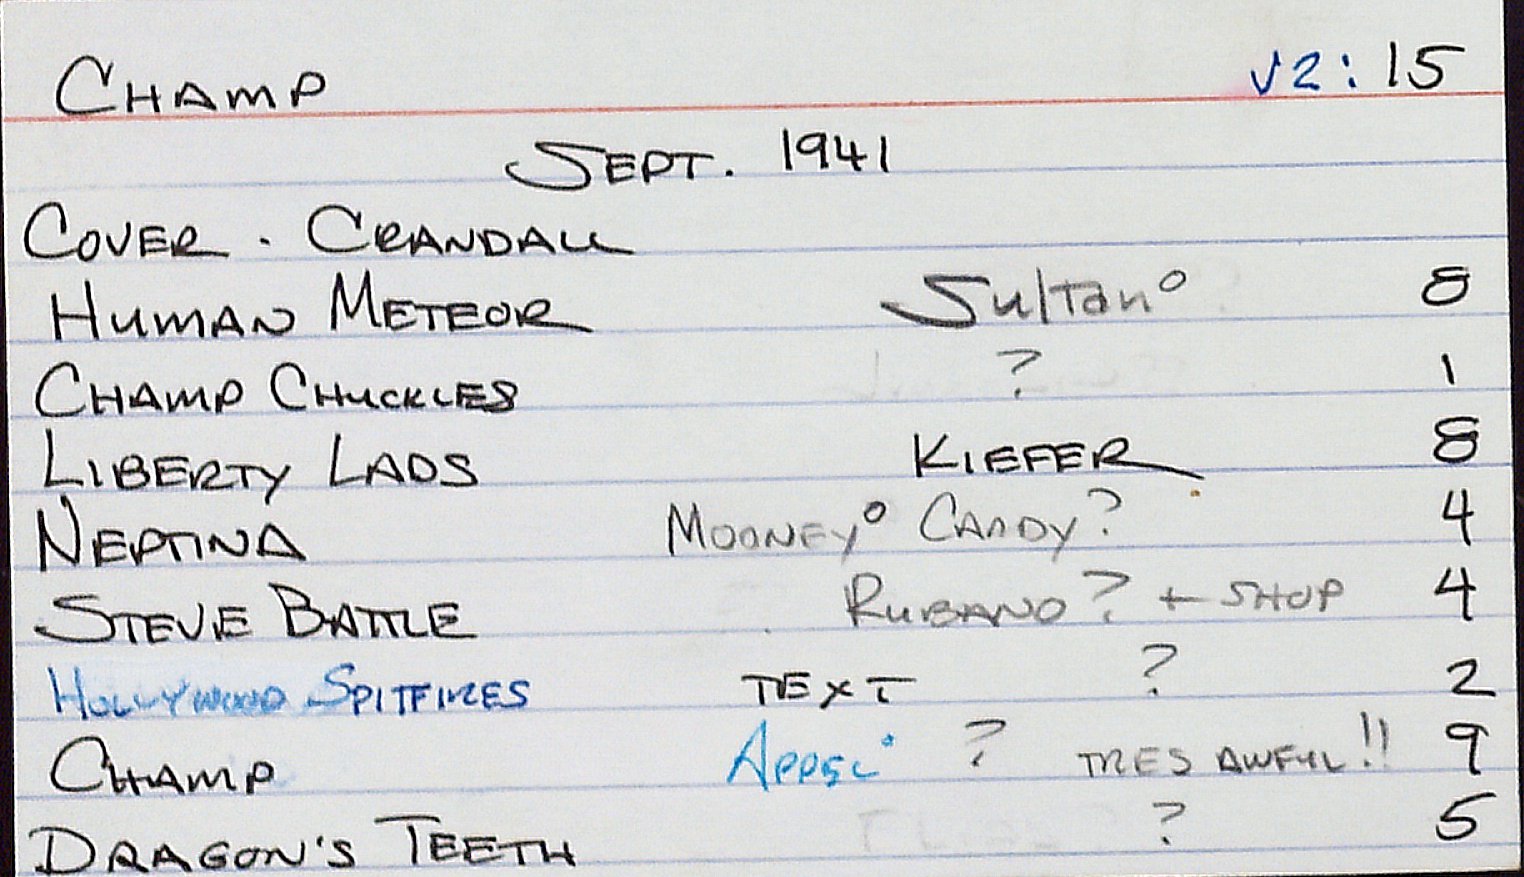 CHAMP V2:15
SEPT. 1941
COVER · CRANDALL
HUMAN METEOR Sultan° 8
CHAMP CHUCKLES ? 1
LIBERTY LADS KIEFER 8
NEPTINA MOONEY° CANDY? 4
STEVE BATTLE RUBANO? + SHOP 4
HOLLYWOOD SPITFIRES TEXT ? 2
CHAMP APPEL° ? TRES AWFUL!! 9
DRAGON'S TEETH ? 5